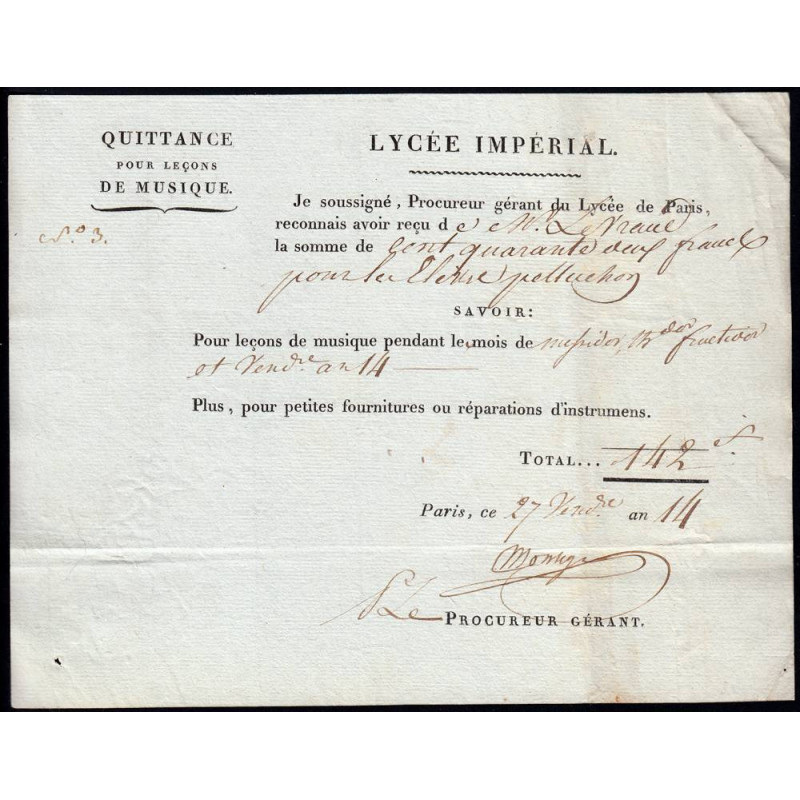 QUITTANCE
POUR LEÇONS
DE MUSIQUE.
N.º 3.
LYCÉE IMPÉRIAL.
Je soussigné, Procureur gérant du Lycée de Paris,
reconnais avoir reçu d e Mr. Levraud
la somme de cent quarante deux francs
pour les Eleves pelluchon
SAVOIR:
Pour leçons de musique pendant le mois de messidor, thdor fructidor
et Vendre an 14
Plus, pour petites fournitures ou réparations d'instrumens.
TOTAL... 142 f.
Paris, ce 27 Vendre an 14
PROCUREUR GÉRANT.